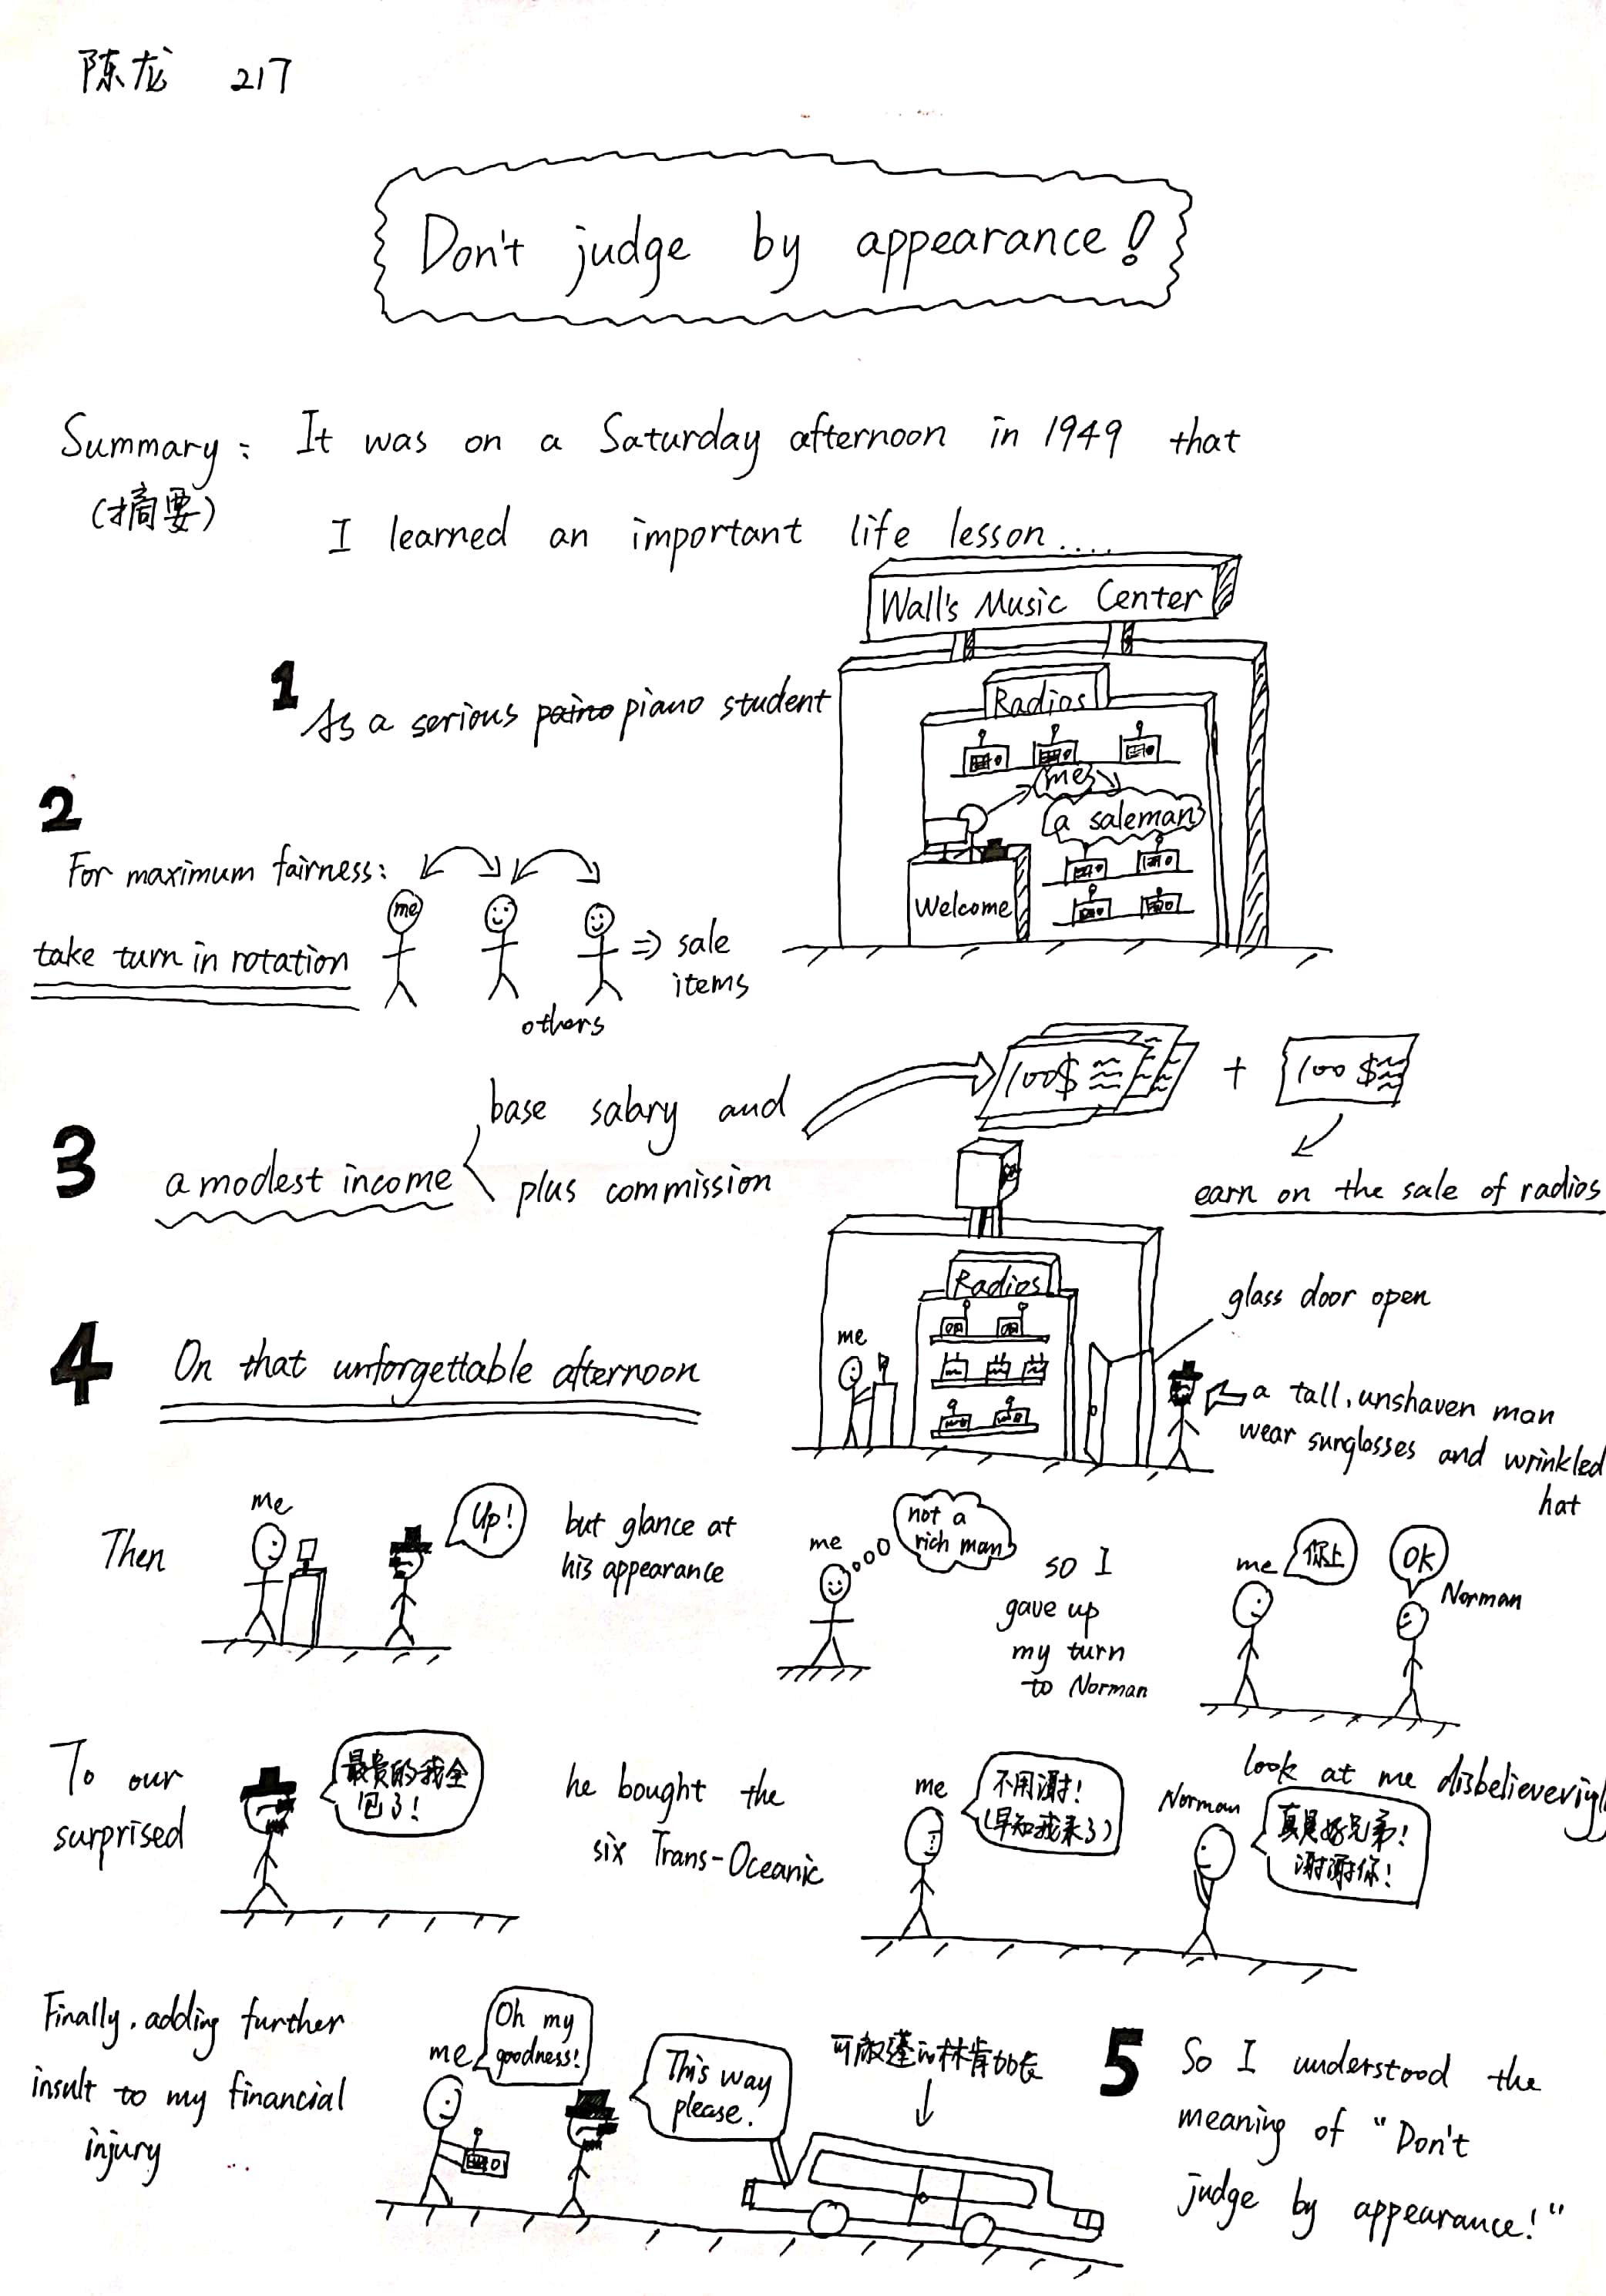 陈龙 217
Don't judge by appearance!
Summary: It was on a Saturday afternoon in 1949 that
(摘要)
I learned an important life lesson....
Wall's Music Center
1
As a serious paino piano student
Radios
me
a saleman
Welcome
2
For maximum fairness:
take turn in rotation
me
others
⇒ sale
items
3
a modest income
base salary and
plus commission
100$
+
100$
earn on the sale of radios
4
On that unforgettable afternoon
Radios
me
glass door open
a tall, unshaven man
wear sunglosses and wrinkled
hat
Then
me
Up!
but glance at
his appearance
me
not a
rich man
so I
gave up
my turn
to Norman
me
你上
OK
Norman
To our
surprised
最贵的我全
包了!
he bought the
six Trans-Oceanic
me
不用谢!
(早知我来了)
look at me disbelieveriyly
Norman
真是好兄弟!
谢谢你!
Finally, adding further
insult to my financial
injury
me
Oh my
goodness!
This way
please.
可敞篷的林肯加长
5
So I understood the
meaning of "Don't
judge by appearance!"